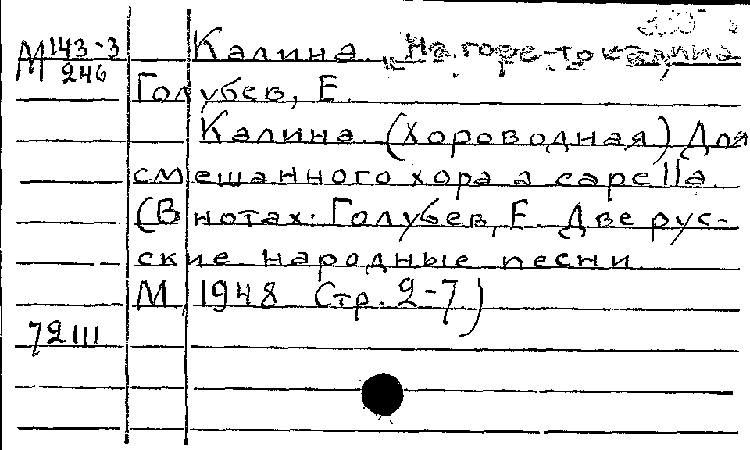 М 143-3
246
Калина. "На горе-то калина
Голубев, Е.
Калина (Хороводная) Для
смешанного хора a capella.
(В нотах: Голубев, Е. Две рус-
ские народные песни
М. 1948 Стр. 2-7.)
72111